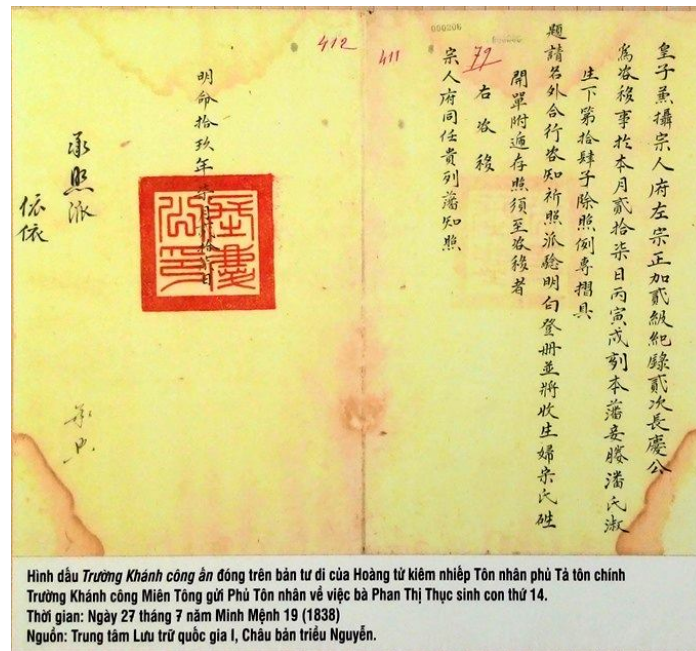 皇子兼攝宗人府左宗正加貳級紀錄貳次長慶公
爲咨移事於本月貳拾柒日丙寅戌刻本藩妾媵潘氏淑
生下第拾肆子除照例專摺具
題請名外合行咨知祈照派騐明白登冊並將收生婦宋氏
開單附遞存照須至咨移者
右咨移
宗人府同任貴列藩知照
79
411
412
明命拾玖年柒月貳拾柒日
長慶公印
承照派
依依
Hình dấu Trường Khánh công ấn đóng trên bản tư di của Hoàng tử kiêm nhiếp Tôn nhân phủ Tả tôn chính
Trường Khánh công Miên Tông gửi Phủ Tôn nhân về việc bà Phan Thị Thục sinh con thứ 14.
Thời gian: Ngày 27 tháng 7 năm Minh Mệnh 19 (1838)
Nguồn: Trung tâm Lưu trữ quốc gia I, Châu bản triều Nguyễn.